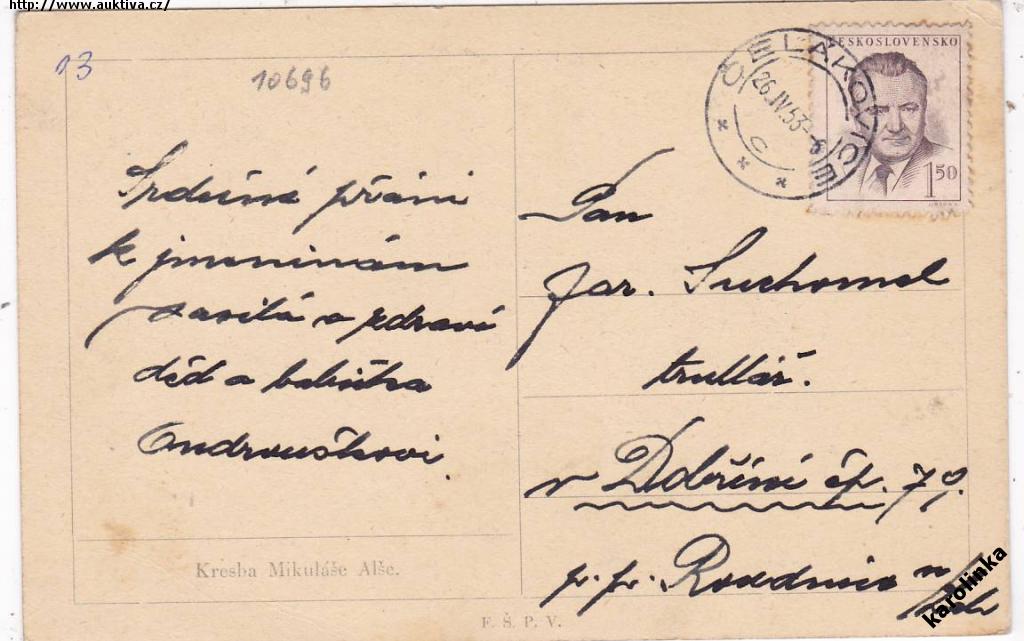 http://www.auktiva.cz/
13
10696
ČELÁKOVICE
26.IV.53
c
ČESKOSLOVENSKO
1 50
Srdečné přání
k jmeninám
zasílá a zdraví
děd a babička
Ondrouškovi.
Pan
Jar. Suchomel
truhlář.
v Dobříni čp. 79.
p. p. Roudnice n
Kresba Mikuláše Alše.
F. Š. P. V.
karolinka